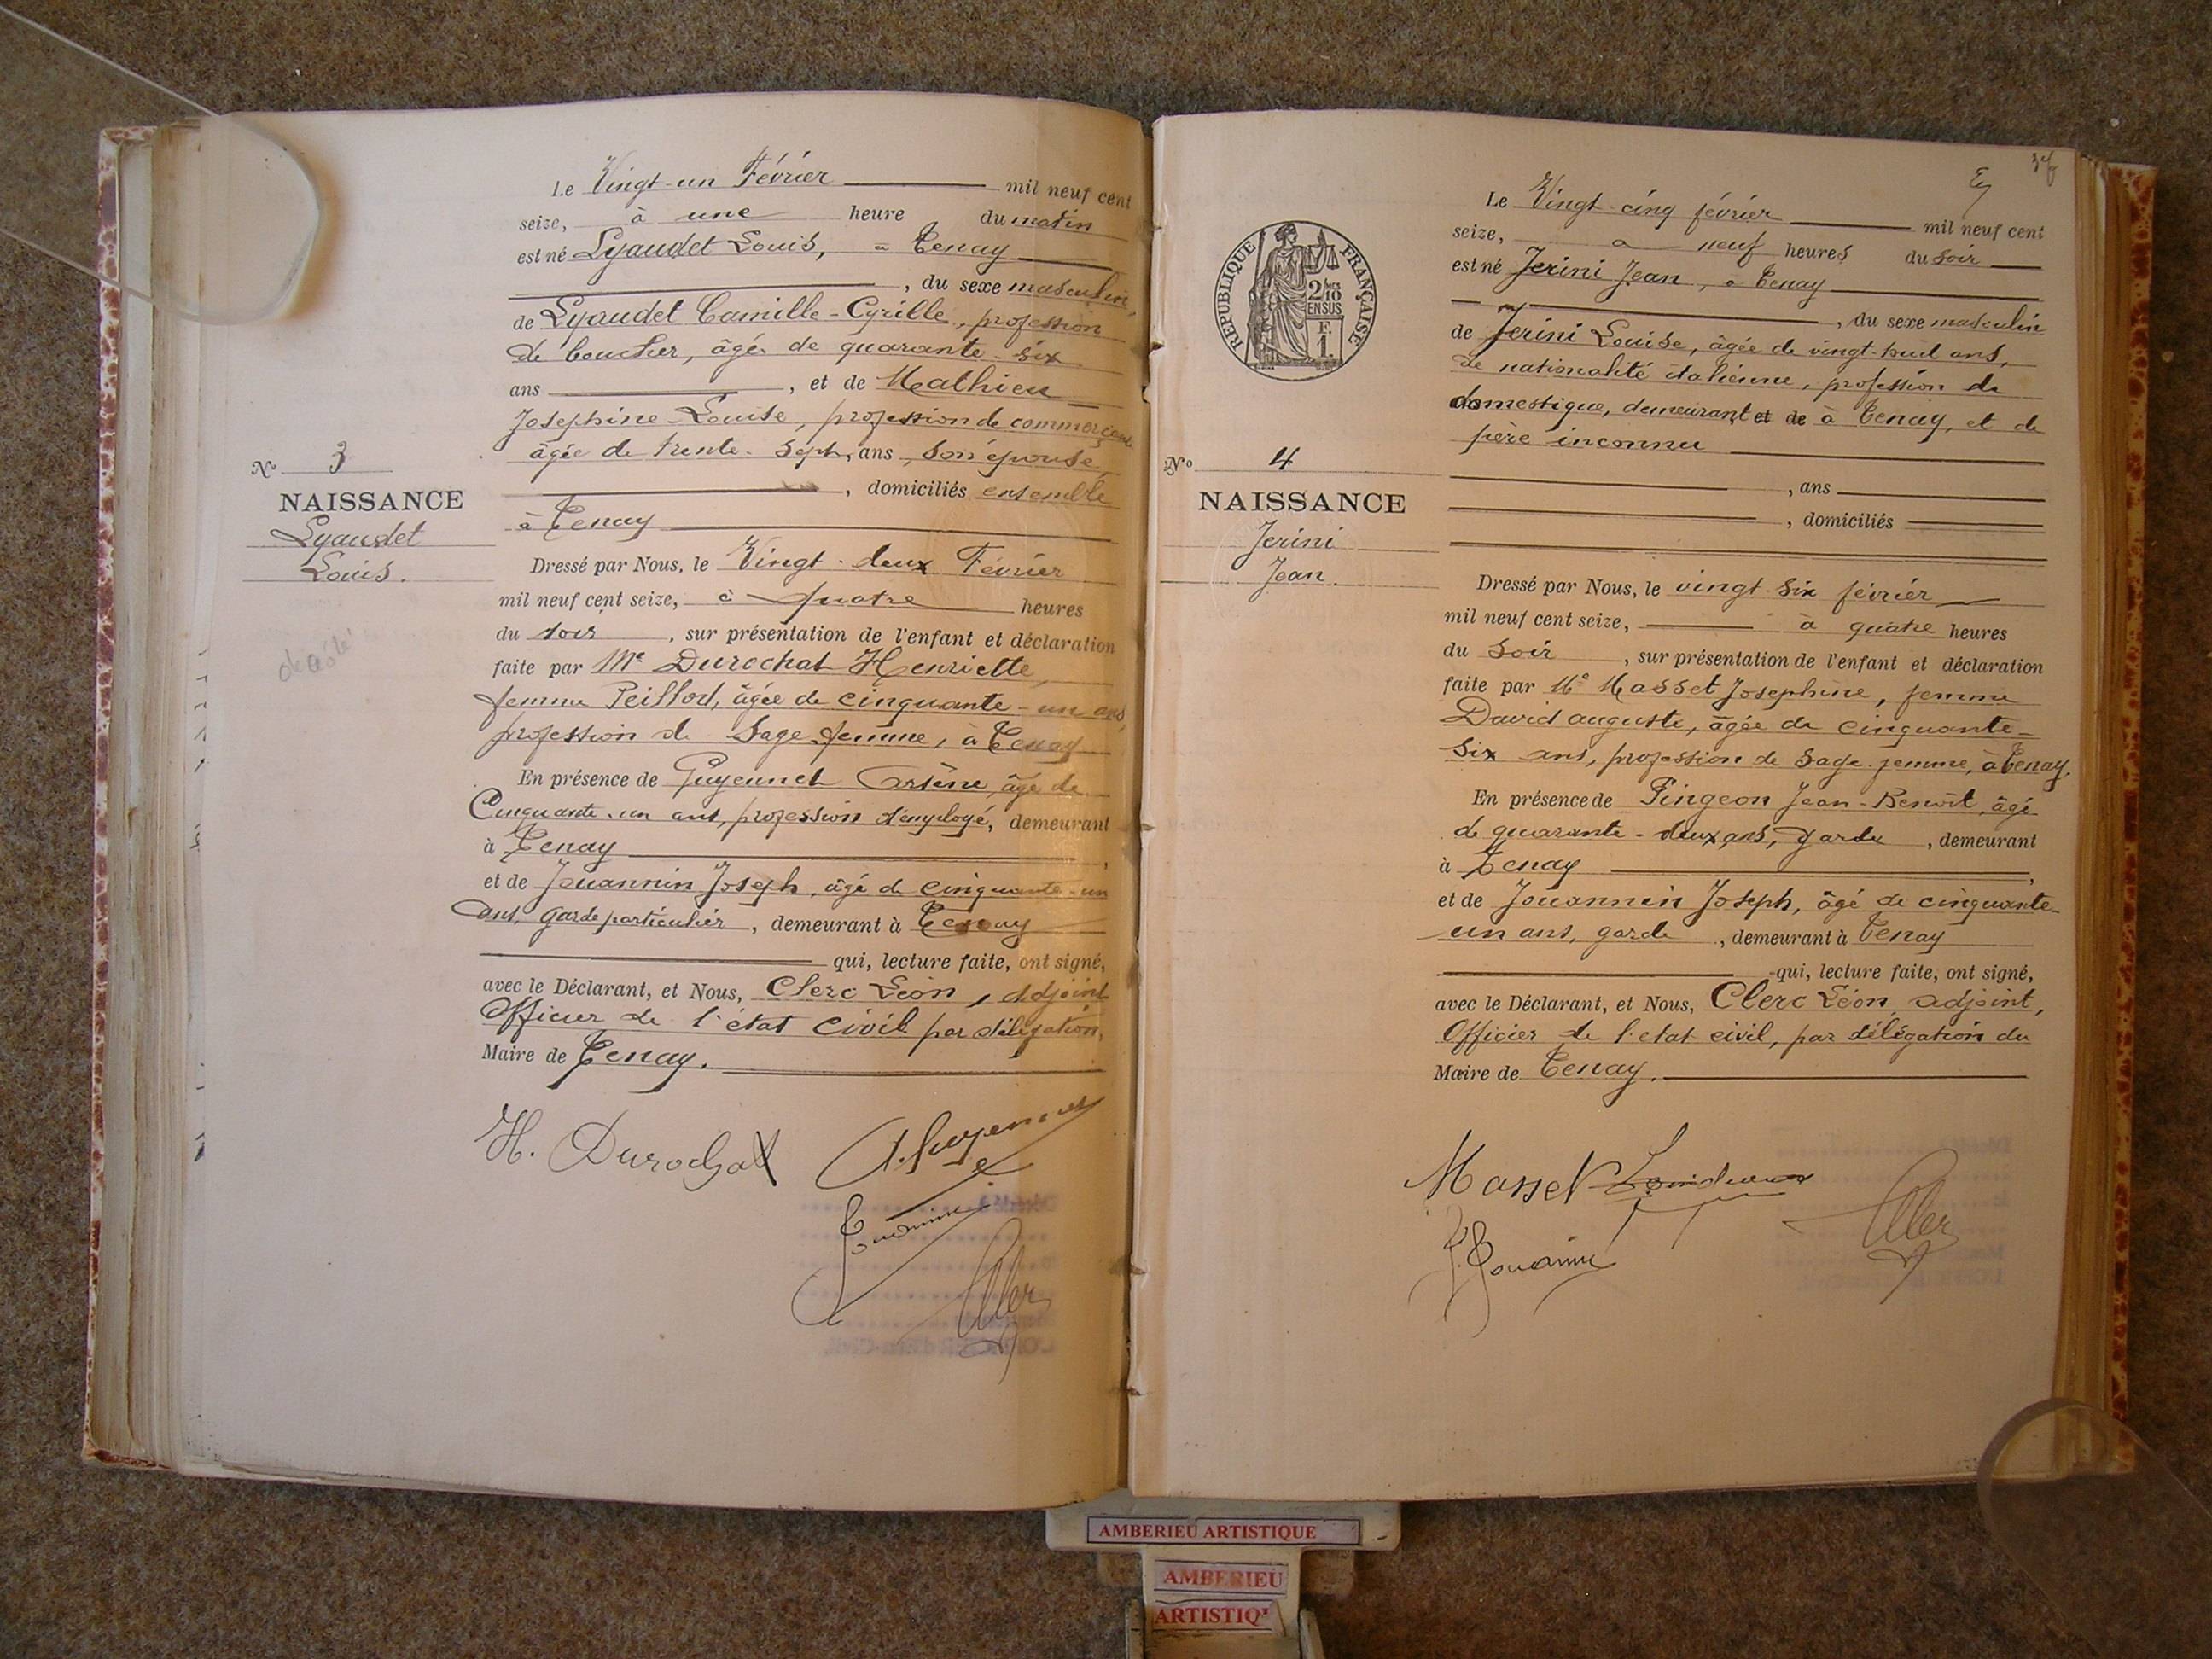 Le Vingt-un Février mil neuf cent
seize, à une heure du matin
est né Lyaudet Louis, à Tenay
, du sexe masculin,
de Lyaudet Camille-Cyrille, profession
de boucher, âgé de quarante-six
ans , et de Mathieu
Josephine Louise, profession de commerçante
âgée de trente-sept, ans, son épouse,
, domiciliés ensemble
à Tenay
N° 3
NAISSANCE
Lyaudet
Louis.
Dressé par Nous, le Vingt-deux Février
mil neuf cent seize, à quatre heures
du soir , sur présentation de l'enfant et déclaration
faite par Me Durochat Henriette,
femme Peillod, âgée de cinquante-un ans,
profession de Sage-femme, à Tenay
En présence de Guyennet Arsène, âgé de
Cinquante-un ans, profession d'employé, demeurant
à Tenay ,
et de Jouannin Joseph, âgé de cinquante-un
ans, garde particulier , demeurant à Tenay
qui, lecture faite, ont signé,
avec le Déclarant, et Nous, Clerc Léon, adjoint
Officier de l'état civil par délégation,
Maire de Tenay.
H. Durochat
Le Vingt-cinq février mil neuf cent
seize, à neuf heures du soir
est né Jerini Jean, à Tenay
, du sexe masculin
de Jerini Louise, âgée de vingt-huit ans,
de nationalité italienne, profession de
domestique, demeurant et de à Tenay, et de
père inconnu
, ans
, domiciliés
RÉPUBLIQUE FRANÇAISE
2/10
EN SUS
F.
1.
N° 4
NAISSANCE
Jerini
Jean.
Dressé par Nous, le vingt-six février
mil neuf cent seize, à quatre heures
du Soir , sur présentation de l'enfant et déclaration
faite par Me Masset Josephine, femme
David auguste, âgée de cinquante-
six ans, profession de sage-femme, à Tenay,
En présence de Pingeon Jean-Benoit, âgé
de quarante-deux ans, garde , demeurant
à Tenay ,
et de Jouannin Joseph, âgé de cinquante-
un ans, garde , demeurant à Tenay
qui, lecture faite, ont signé,
avec le Déclarant, et Nous, Clerc Léon, adjoint,
Officier de l'etat civil, par délégation du
Maire de Tenay.
Masset
AMBERIEU ARTISTIQUE
AMBERIEU
ARTISTIQ